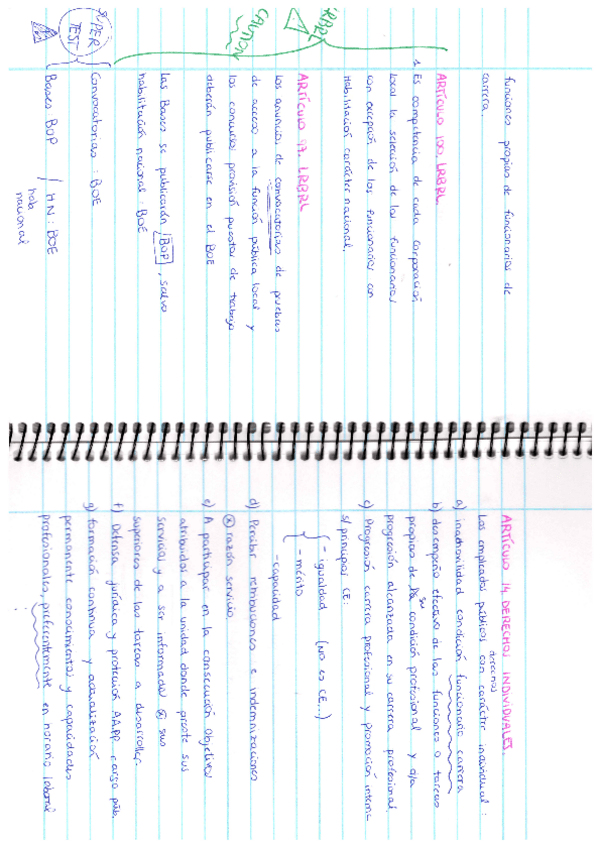 funciones propias de funcionarios de
carrera.
ARTÍCULO 100. LRBRL
1. Es competencia de cada corporación
local la selección de los funcionarios
con excepción de los funcionarios con
Habilitación carácter nacional.
LRBRL
ARTÍCULO 97. LRBRL
CAUTION
Los anuncios de convocatorias de pruebas
de acceso a la función pública local y
los concurso provisión puestos de trabajo
deberán publicarse en el BOE
Las Bases se publicarán BOP, salvo
habilitación nacional: BOE
SUPER
TEST
Convocatorias: BOE
Bases BOP / HN: BOE
hab
nacional
ARTÍCULO 14 DERECHOS INDIVIDUALES.
derechos
Los empleados públicos con carácter individual:
a) inamovilidad condición funcionario carrera
b) desempeño efectivo de las funciones o tareas
propias de su condición profesional y d/a
progresión alcanzada en su carrera profesional.
c) Progresión carrera profesional y promoción interna
s/ principios CE
- igualdad (NO es CE...)
- mérito
- capacidad
d) Percibir retribuciones e indemnizaciones
razón servicio
e) A participar en la consecución objetivos
atribuidos a la unidad donde preste sus
servicios y a ser informado sus
superiores de las tareas a desarrollar.
f) Defensa jurídica y protección AAPP cargo púb.
g) formación continua y actualización
permanente conocimientos y capacidades
profesionales, preferentemente en horario laboral